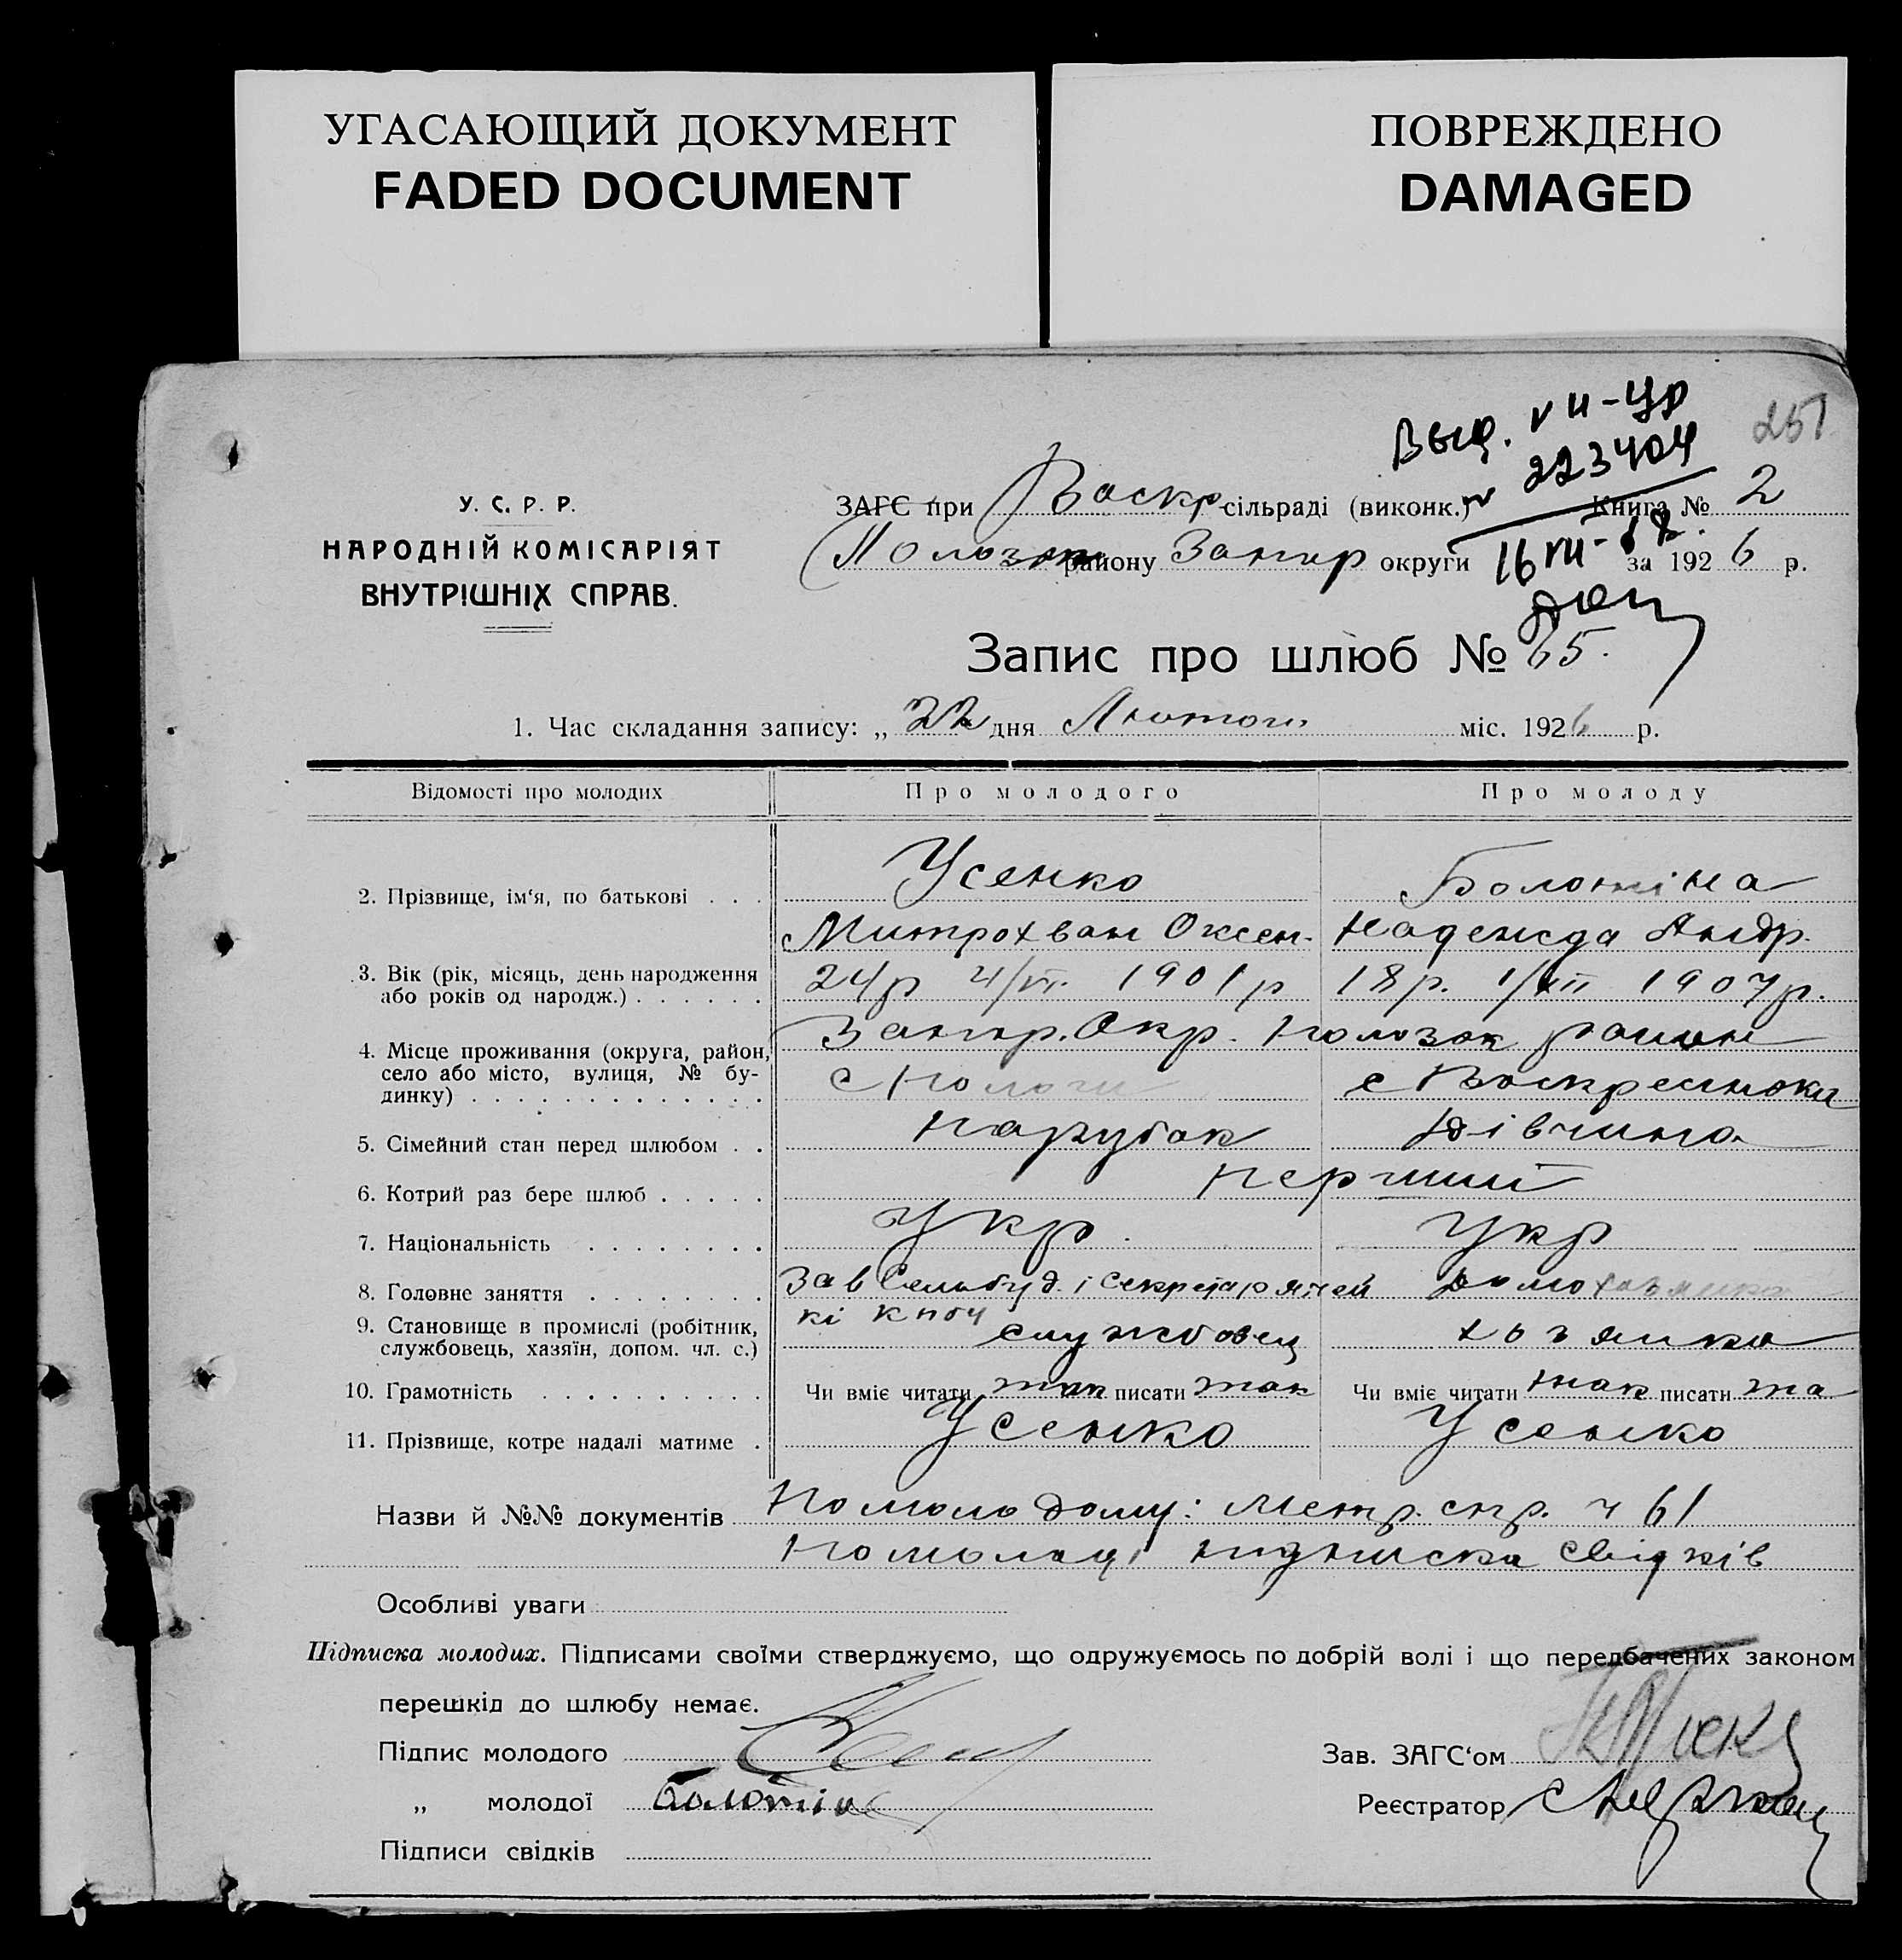 УГАСАЮЩИЙ ДОКУМЕНТ
FADED DOCUMENT
ПОВРЕЖДЕНО
DAMAGED
251
Выд.
№ 223404
16 VII
У. С. Р. Р.
НАРОДНІЙ КОМІСАРІЯТ
ВНУТРІШНІХ СПРАВ.
ЗАГС при Воскр сільраді (виконк.) Книга № 2
Пологов району Запор округи за 1926 р.
Запис про шлюб № 65.
1. Час складання запису: „ 22 дня Лютого міс. 1926 р.
Відомості про молодих Про молодого Про молоду
2. Прізвище, ім'я, по батькові . . . Усенко Болотіна
Митрохван Оксен. Надежда Андр.
3. Вік (рік, місяць, день народження 24р 4/VI. 1901р 18р. 1/XII 1907р.
або років од народж.) . . . . . .
4. Місце проживання (округа, район, Запор. Окр. Пологов район
село або місто, вулиця, № бу- с Пологи с Воскресенка
динку) . . . . . . . . . . . . .
5. Сімейний стан перед шлюбом . . Парубок Дівчина
6. Котрий раз бере шлюб . . . . . перший
7. Національність . . . . . . . . Укр. Укр
8. Головне заняття . . . . . . . . Зав Сельбуд. і секретар ячей Домохазяйка
кі КПбУ
9. Становище в промислі (робітник, службовець хазяйка
службовець, хазяїн, допом. чл. с.)
10. Грамотність . . . . . . . . . . Чи вміє читати так писати так Чи вміє читати так писати та
11. Прізвище, котре надалі матиме . Усенко Усенко
Назви й №№ документів По молодому: метр. спр. ч 61
По молодці підписка свідків
Особливі уваги
Підписка молодих. Підписами своїми стверджуємо, що одружуємось по добрій волі і що передбачених законом
перешкід до шлюбу немає.
Підпис молодого Зав. ЗАГС'ом
„ молодої Болотіна Реєстратор
Підписи свідків